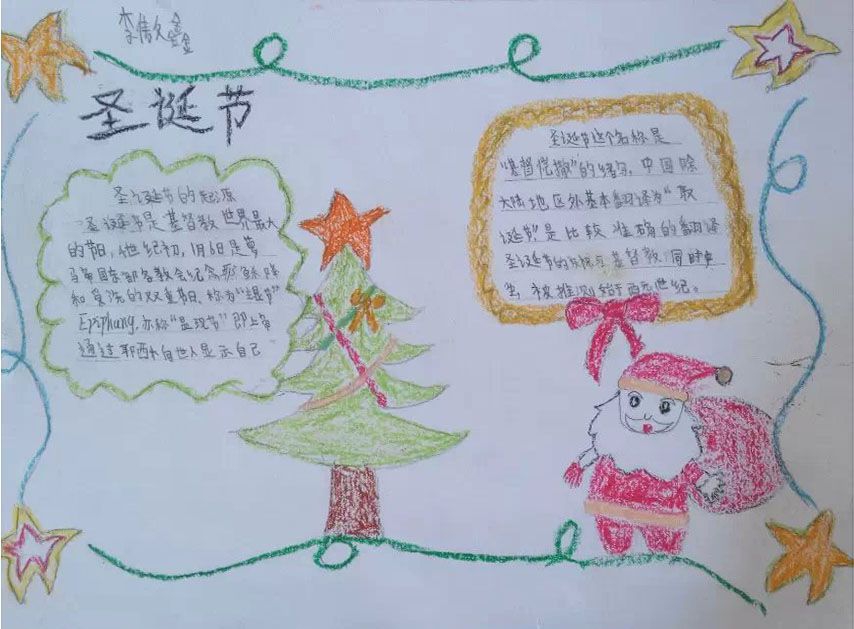 李
鑫
圣诞节
圣诞节的起源
圣诞节是基督教世界最大
的节日,世纪初,1月6日是
马帝国东部各教会纪念耶稣降
和受洗的双重节日,称为"节"
Epiphany,亦称"显现节"即上帝
通过耶向世人显示自己
圣诞节这个名称是
"基督弥撒"的缩写,中国除
大陆地区外基本翻译为"取
诞节",是比较准确的翻译
圣诞节的与基督教同时
生,被推测始于西元世纪。